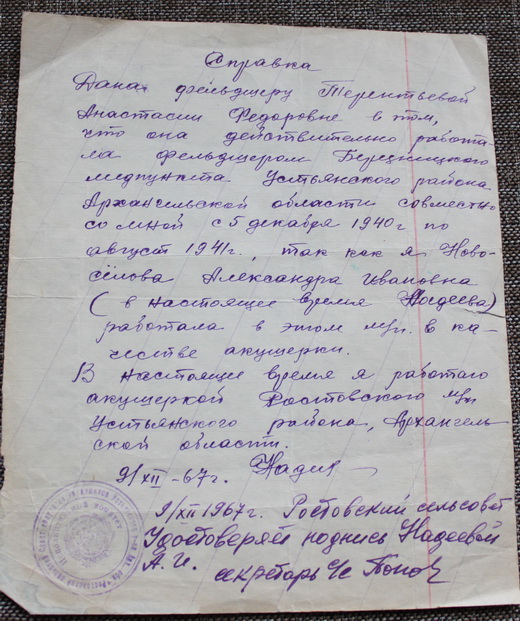 Справка
Дана фельдшеру Терентьевой
Анастасии Федоровне в том,
что она действительно работа-
ла фельдшером Березницкого
медпункта Устьянского района
Архангельской области совместно
со мной с 5 декабря 1940 г по
август 1941 г., так как я Ново-
сёлова Александра Ивановна
(в настоящее время Надеева)
работала в этом м/п. в ка-
честве акушерки.
В настоящее время я работаю
акушеркой Ростовского м/п
Устьянского района, Архангель-
ской области.
9/XII-67г. Надеев
9/XII 1967г. Ростовский сельсовет
Удостоверяй подпись Надеевой
А. И.
секретарь с/с